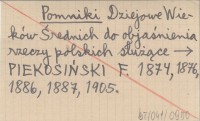 Pomniki Dziejowe Wie-
ków Średnich do objaśnienia
rzeczy polskich służące →
PIEKOSIŃSKI F. 1874, 1876,
1886, 1887, 1905.